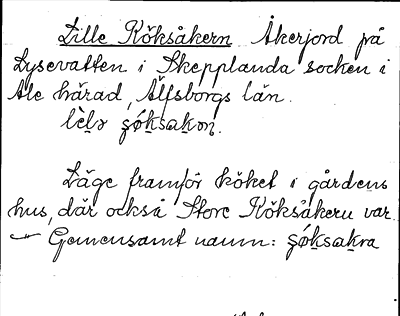 Lille Köksåkern Åkerjord på
Lysevatten i Skepplanda socken i
Ale härad, Älfsborgs län.
lèlɘ ʂǿksakɘn.
Läge framför köket i gårdens
hus, där också Store Köksåkern var.
Gemensamt namn: ʂǿksakra